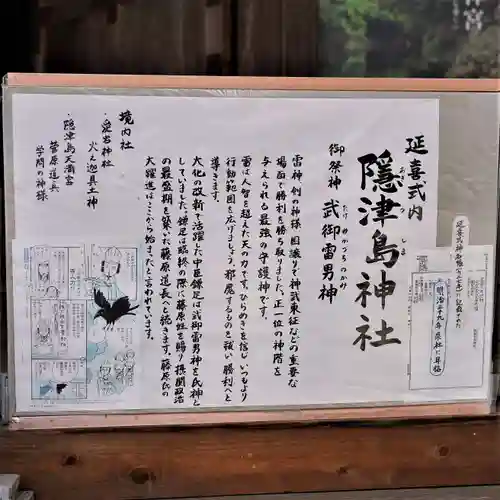 延喜式内
隱津島神社
おきつしま
御祭神 武御雷男神
たけみかづちのかみ
雷神 剣の神様 国譲りで神武東征などの重要な
場面で勝利を勝ち取りました。正一位の神階を
与えられる最強の守護神です。
雷は人智を超えた天の力です。ひらめきを信じいつもより
行動範囲を広げましょう。邪魔するものを祓い勝利へと
導きます。
大化の改新で活躍した中臣鎌足は武御雷男神を氏神と
していました。鎌足は臨終の際に藤原姓を賜り摂関政治
の最盛期を築いた藤原道長へと続きます。藤原氏の
大躍進はここから始まったと言われています。
境内社
・愛宕神社
火之迦具土神
・隠津島天満宮
菅原道長
学問の神様
明治三十九年